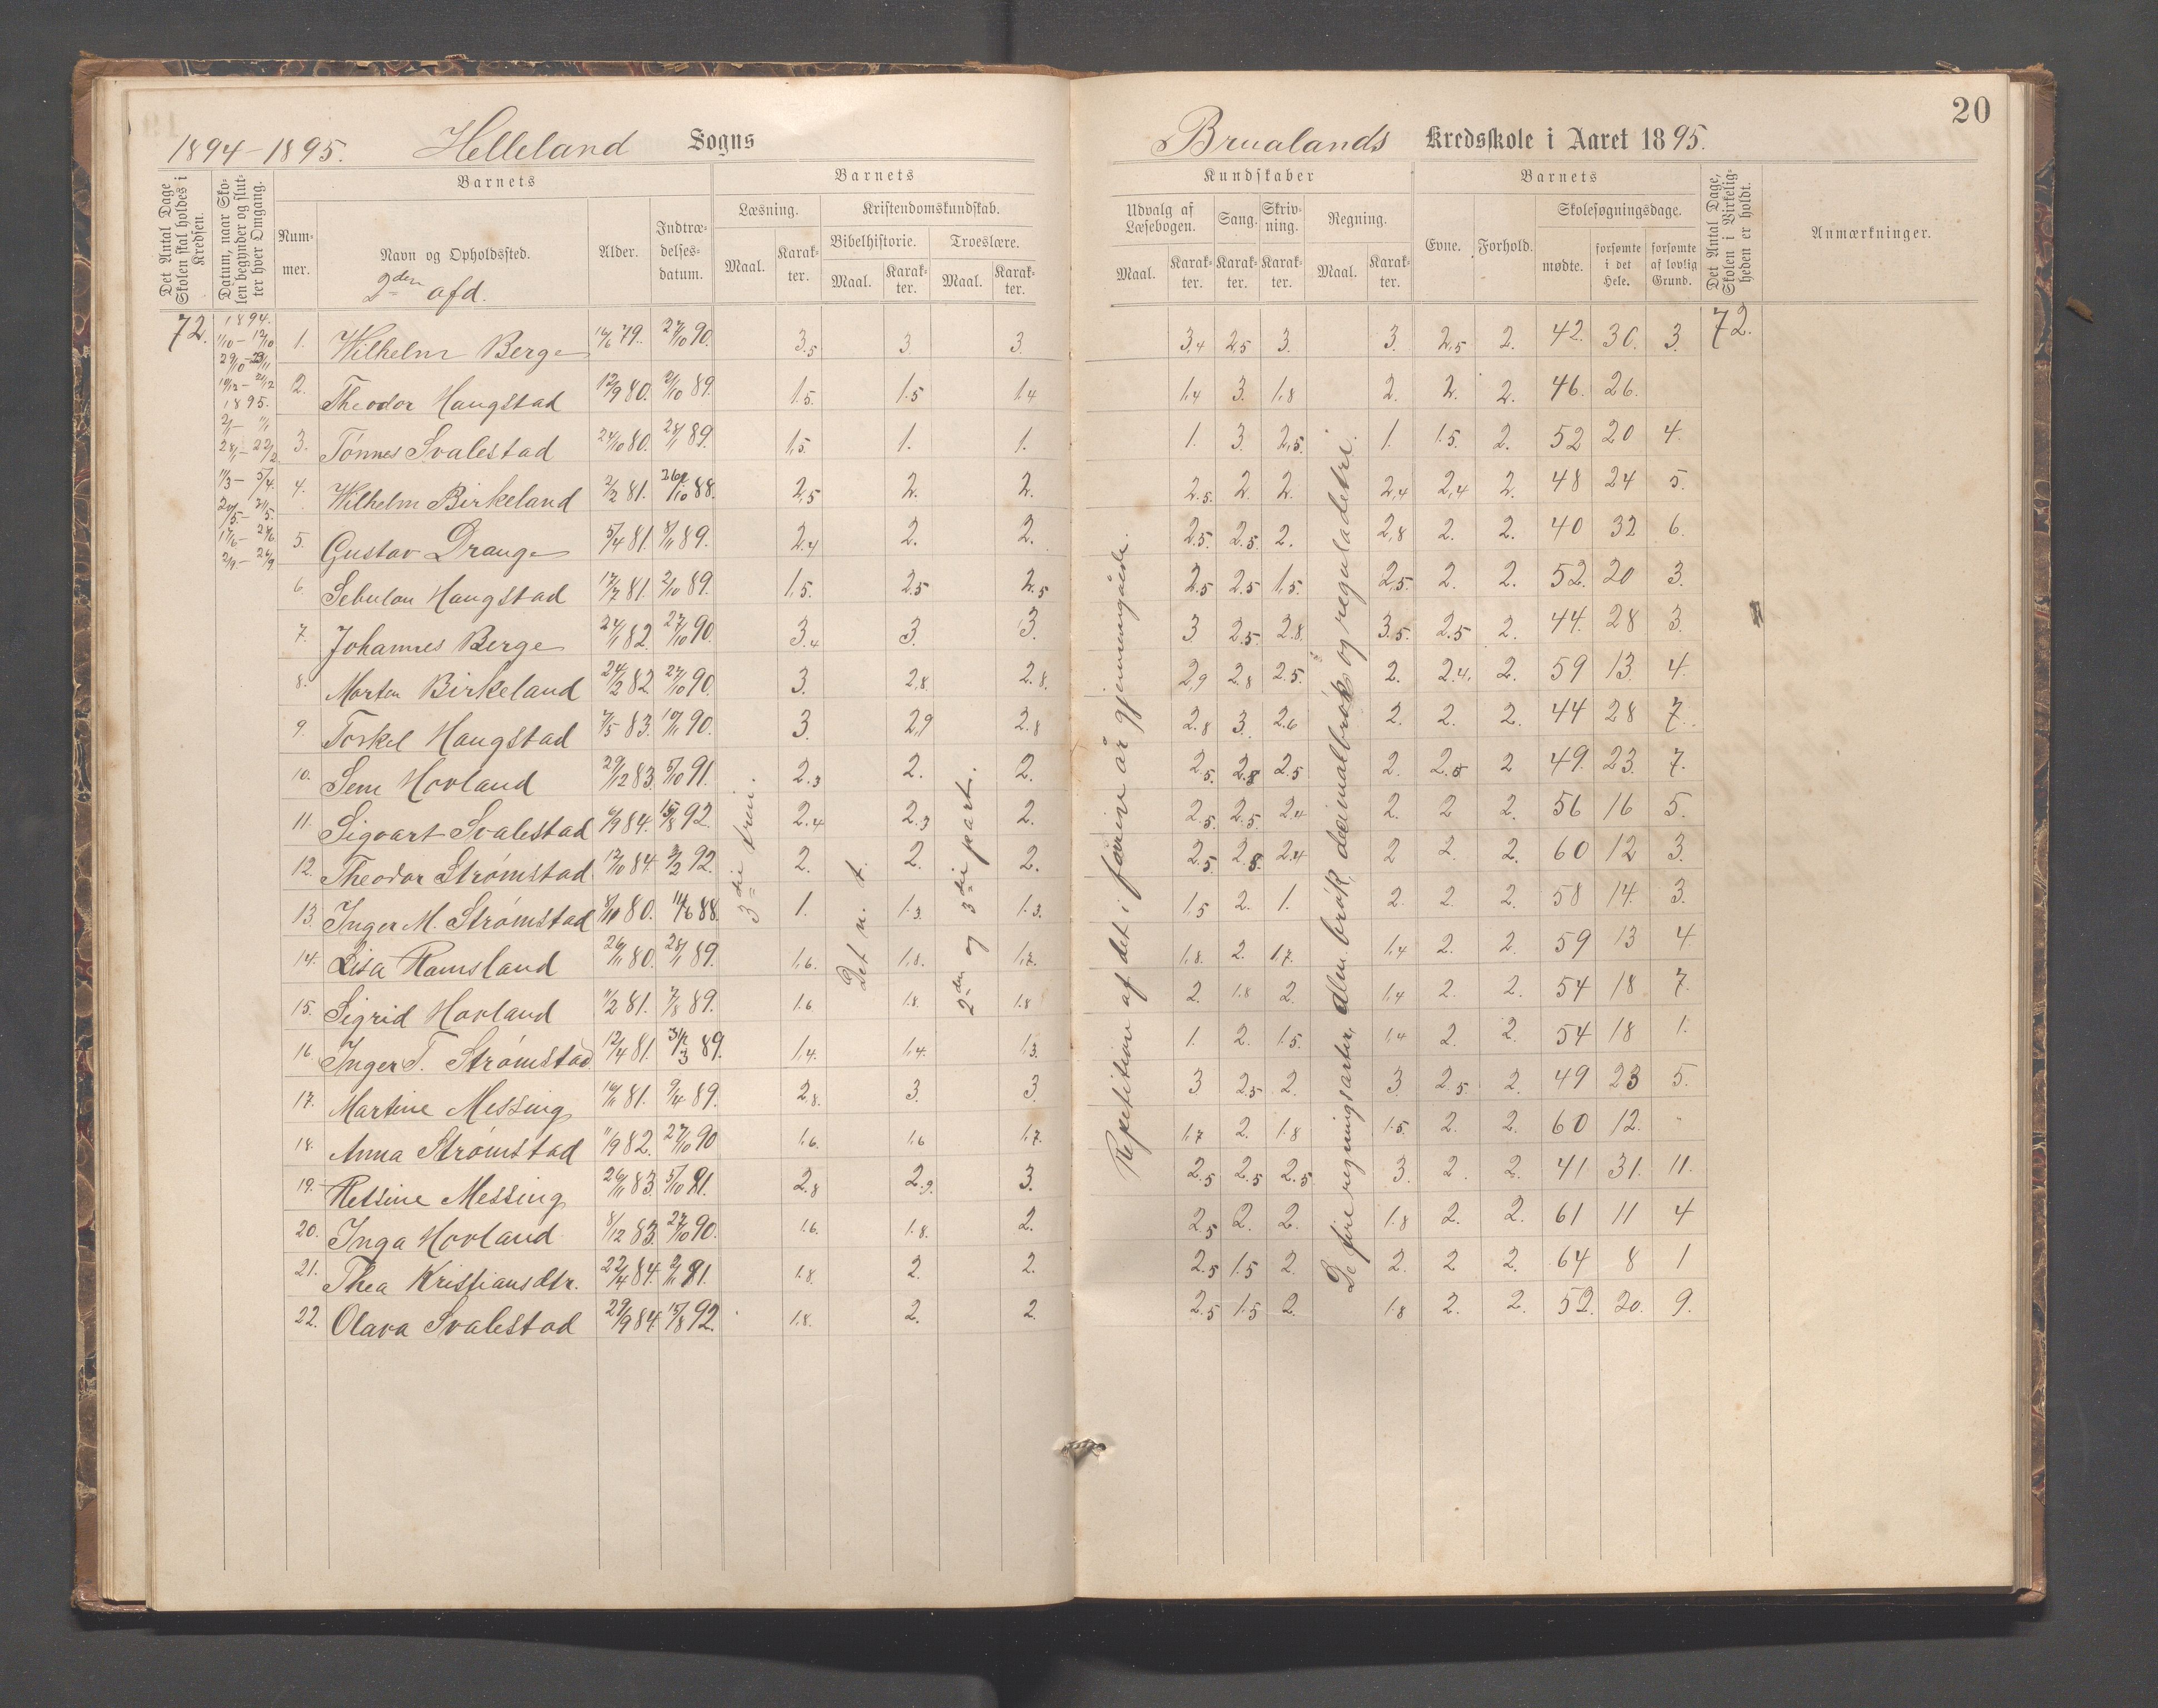 20
1894-1895. Helleland Sogns
Brualands Kredsskole i Aaret 1895.
Det Antal Dage Skolen skal holdes i Kredsen.
Datum, naar Skolen begynder og slutter hver Omgang.
Barnets
Nummer.
Navn og Opholdssted.
2den afd.
Alder.
Indtrædelsesdatum.
Barnets
Læsning.
Maal.
Karakter.
Kristendomskundskab.
Bibelhistorie.
Maal.
Karakter.
Troeslære.
Maal.
Karakter.
Kundskaber
Udvalg af Læsebogen.
Maal.
Karakter.
Sang.
Karakter.
Skrivning.
Karakter.
Regning.
Maal.
Karakter.
Barnets
Evne.
Forhold.
Skolesøgningsdage.
mødte.
forsømte i det Hele.
forsømte af lovlig Grund.
Det Antal Dage, Skolen i Virkeligheden er holdt.
Anmærkninger.
72.
1894.
1895.
1. Wilhelm Berge 79. 27/10 90. 3.5 3. 3. 3,4 2,5 3. 3. 2,5 2. 42. 30. 3. 72.
2. Theodor Haugstad 12/9 80. 2/10 89. 1.5. 1.5 1.4 1,4 3. 1,8 2. 2. 2. 46. 26.
3. Tønnes Svalestad 24/10 80. 28/1 89. 1,5. 1. 1. 1. 3. 2,5. 1. 1.5. 2. 52 20 4.
4. Wilhelm Birkeland 2/2 81. 88. 2,5 2. 2. 2.5. 2. 2. 2,4 2,4 2. 48 24 5.
5. Gustav Drange 5/4 81. 8/11 89. 2.4 2. 2. 2.5. 2.5. 2. 2,8 2. 2. 40 32 6.
6. Sebulon Haugstad 17/7 81. 2/10 89. 1,5. 2.5 2.5 2.5 2.5 1,5. 2,5. 2. 2. 52. 20 3.
7. Johannes Berge 24/1 82. 27/10 90. 3.4 3. 3. 3 2.5 2.8. 3.5. 2.5 2. 44. 28 3.
8. Morten Birkeland 24/2 82. 27/10 90. 3. 2,8 2.8. 2,9 2.8 2.5. 2. 2.4. 2. 59 13. 4.
9. Torkel Haugstad 7/5 83. 90. 3. 2,9 2.8 2.8 3. 2.6 2. 2. 2. 44 28 7.
10. Sem Hovland 29/12 83. 5/10 91. 2.3 2. 2. 2.5. 2.8 2.5 2. 2.5 2 49. 23. 7.
11. Sigvart Svalestad 6/9 84. 15/8 92. 2.4 2.3 2. 2.5. 2.5. 2.4 2. 2 2. 56 16 5.
12. Theodor Strømstad. 12/10 84. 92. 2. 2. 2. 2.5. 2.8. 2.4 2 2. 2. 60 12 3.
13. Inger M. Strømstad 8/10 80. 11/6 88. 1. 1.3. 1.3. 1.5 2. 1. 2. 2. 2. 58 14. 3.
14. Lisa Ramsland 26/11 80. 28/1 89. 1,6. 1,8. 1,7. 1,8. 2. 1,7. 1,4 2. 2. 59 13 4
15. Sigrid Hovland 11/2 81. 7/8 89. 1.6 1.8. 1.8 2. 1.8 2. 1,4 2. 2. 54 18 7.
16. Inger T. Strømstad 12/4 81. 89. 1,4. 1,4. 1,3. 1. 2. 1.5. 1,4 2. 2. 54 18 1.
17. Martine Messing 81. 9/4 89. 2,8. 3. 3. 3 2.5 2. 3 2.5. 2. 49 23 5.
18. Anna Strømstad 11/9 82. 27/10 90 1,6. 1,6 1,7. 1,7 2. 1.8 1.5. 2. 2. 60 12. -
19. Ressine Messing 26/11 83. 5/10 91. 2.8 2.9. 3. 2.5 2.5 2.5 3. 2. 2. 41 31. 11.
20. Inga Hovland 8/12 83. 27/10 90. 1.6. 1.8. 2. 2.5 2. 2. 1.8 2. 2. 61 11 4
21. Thea Kristiansdtr. 22/4 84. 2/11 91. 1.8. 2. 2. 2.5 1.5 2. 2. 2 2. 64 8 1
22. Olava Svalestad 29/9 84. 15/8 92. 1.8. 2. 2. 2.5 1.5 2. 1.8 2. 2. 52. 20. 9.
3die trin.
Det n. t.
2den og 3die part.
Repetition af det i forrive år gjennemgåede.
De fire regningsarter, alm. brøk, decimalbrøk og reguladetri.